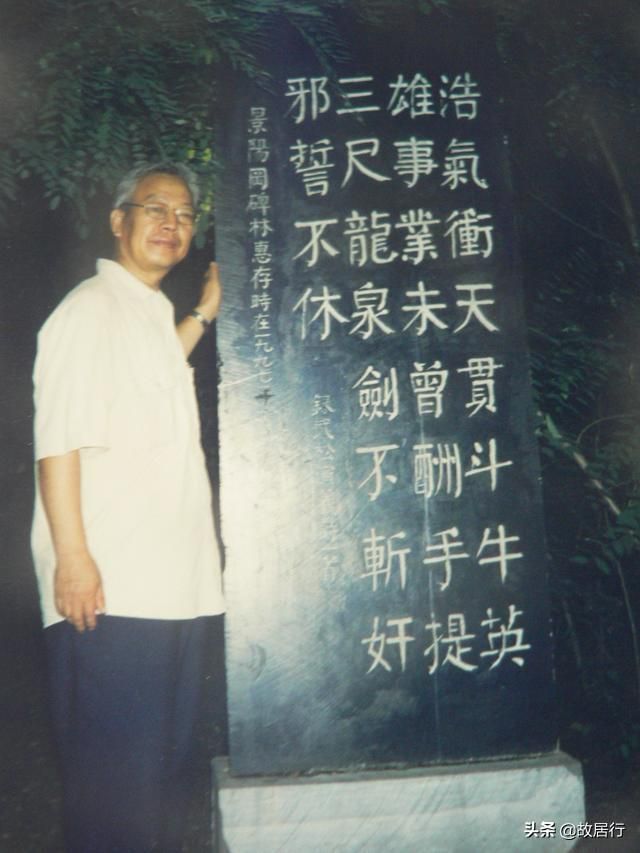 浩氣衝天貫斗牛英
雄事業未曾酬手提
三尺龍泉劍不斬奸
邪誓不休
景陽岡碑林惠存時在一九九
头条 @故居行